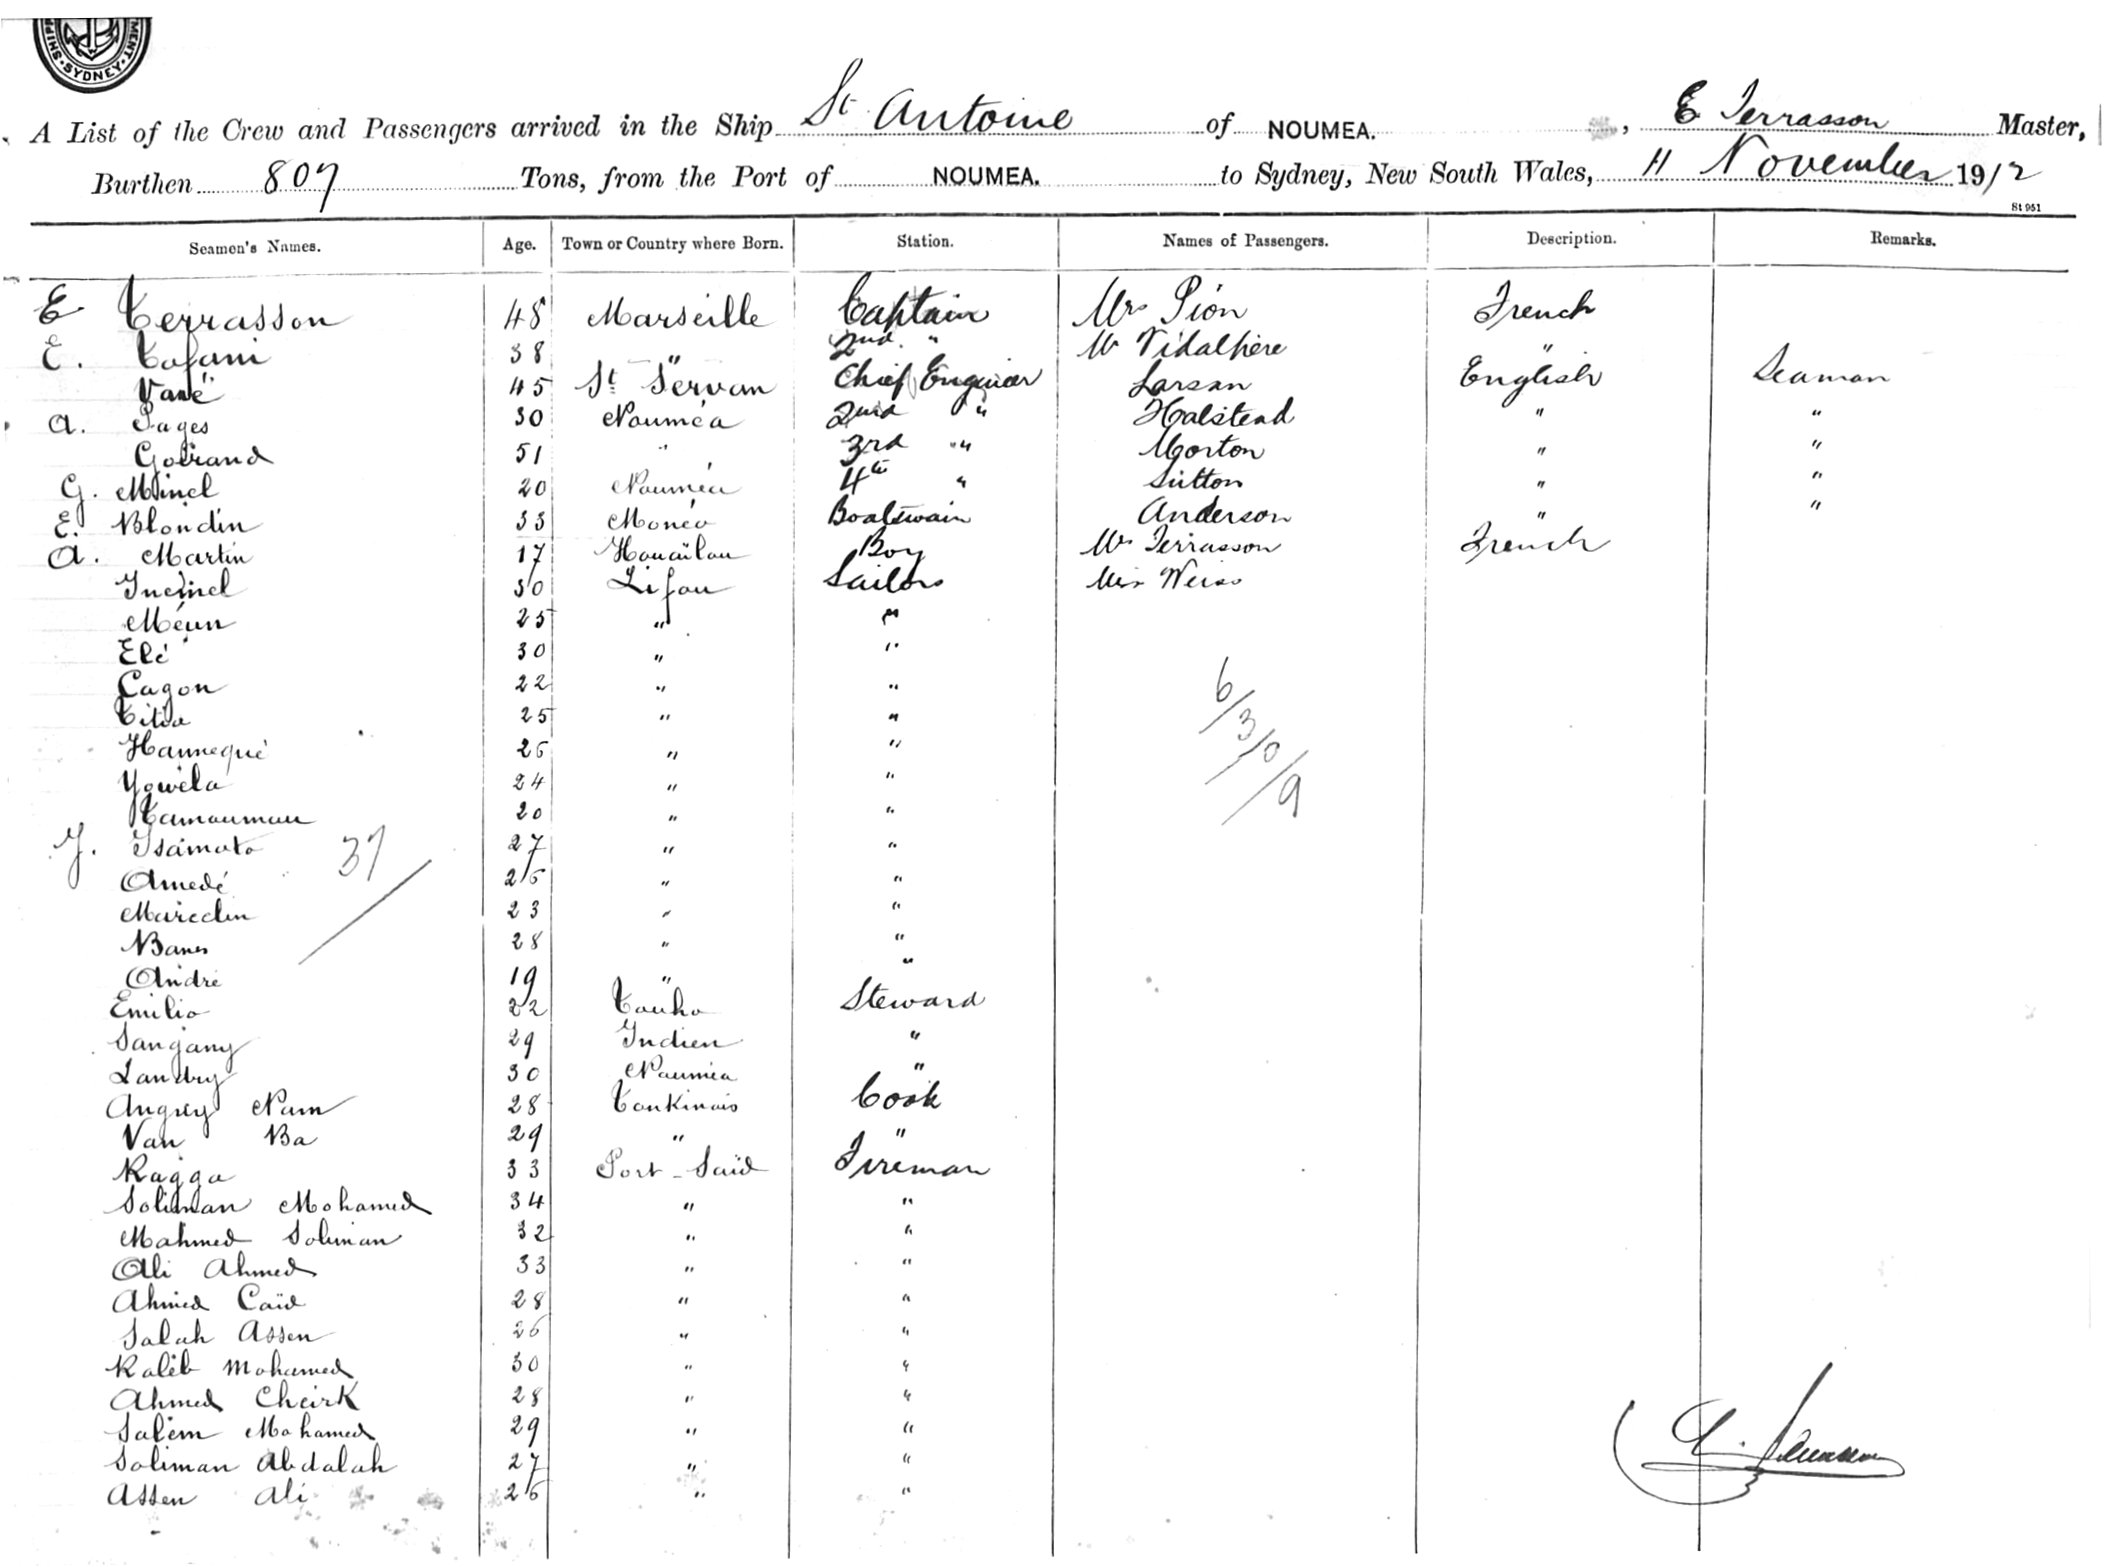 SHIP · SYDNEY · MENT
A List of the Crew and Passengers arrived in the Ship St Antoine of NOUMEA. , E Terrasson Master,
Burthen 807 Tons, from the Port of NOUMEA. to Sydney, New South Wales, 11 November 1912
St 951
Seamen's Names. Age. Town or Country where Born. Station. Names of Passengers. Description. Remarks.
E Terrasson 48 Marseille Captain Mrs Pion French
E. Tofani 38 " 2nd " Mr Vidalhère "
45 St Servan Chief Engineer Larsan English Seaman
A. Pages 30 Nouméa 2nd " Halstead " "
Goirand 51 " 3rd " Morton " "
G. Minel 20 Nouméa 4th " Sutton " "
E. Blondin 33 Monéo Boatswain Anderson " "
A. Martin 17 Houaïlou Boy Mrs Terrasson French
30 Lifou Sailors Miss Weiss
Méun 25 " "
Elé 30 " "
Cagon 22 " "
Titia 25 " "
Hannequé 26 " "
Yowéla 24 " "
Tamouman 20 " "
Y. Isamoto 27 " "
Amedé 26 " "
Marcelin 23 " "
28 " "
André 19 " "
Emilio 22 Touho Steward
Sangany 29 Indien "
Landry 30 Nouméa "
Nam 28 Tonkinois Cook
Van Ba 29 " "
Ragga 33 Port-Saïd Fireman
Soliman Mohamed 34 " "
Mahmed Soliman 32 " "
Ali Ahmed 33 " "
Ahmed Caïd 28 " "
Salah Assen 26 " "
Kaléb Mohamed 30 " "
Ahmed Cheirk 28 " "
Salem Mohamed 29 " "
Soliman Abdalah 27 " "
Assen Ali 26 " "
37
6/3/0/9
E. Terrasson